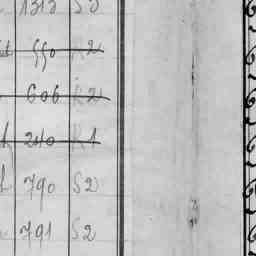 1313 S
550 R 2
606 R 2
240 R 1
790 S 2
791 S 2